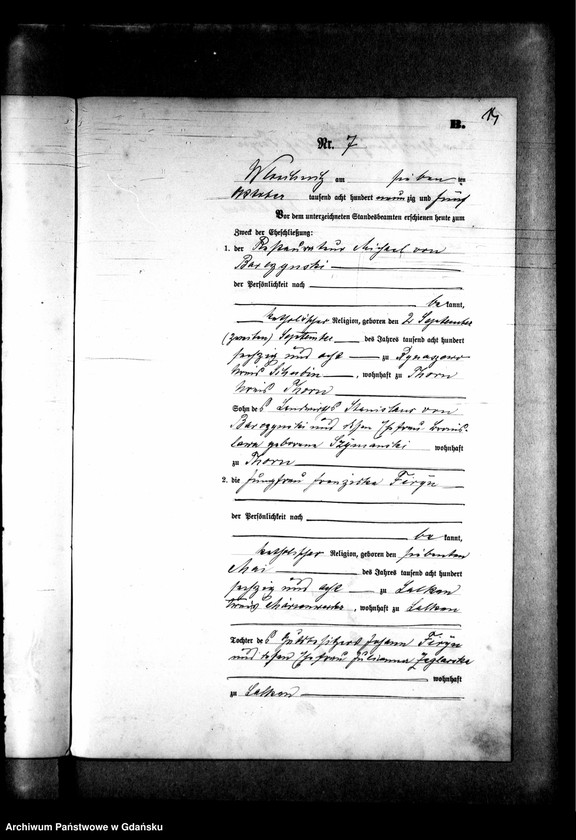 B.
Nr. 7
am sieben ten
Oktober tausend acht hundert neunzig und fünf
Vor dem unterzeichneten Standesbeamten erschienen heute zum
Zweck der Eheschließung:
1. der Restaurateur Michael von
der Persönlichkeit nach
bekannt,
katholischer Religion, geboren den 2 September
(zweiten) September des Jahres tausend acht hundert
sechzig und acht zu
Kreis Schubin, wohnhaft zu Thorn
Kreis Thorn
Sohn des Landwirths Stanislaus von
und dessen Ehefrau Bronis-
lawa geborene Szymanski wohnhaft
zu Thorn
2. die Jungfrau Franziska
der Persönlichkeit nach
bekannt,
katholischer Religion, geboren den siebenten
Mai des Jahres tausend acht hundert
sechzig und acht zu Lalkau
Kreis Marienwerder, wohnhaft zu Lalkau
Tochter des Gutsbesitzers Johann
und dessen Ehefrau Julianna
wohnhaft
zu Lalkau
Archiwum Państwowe w Gdańsku